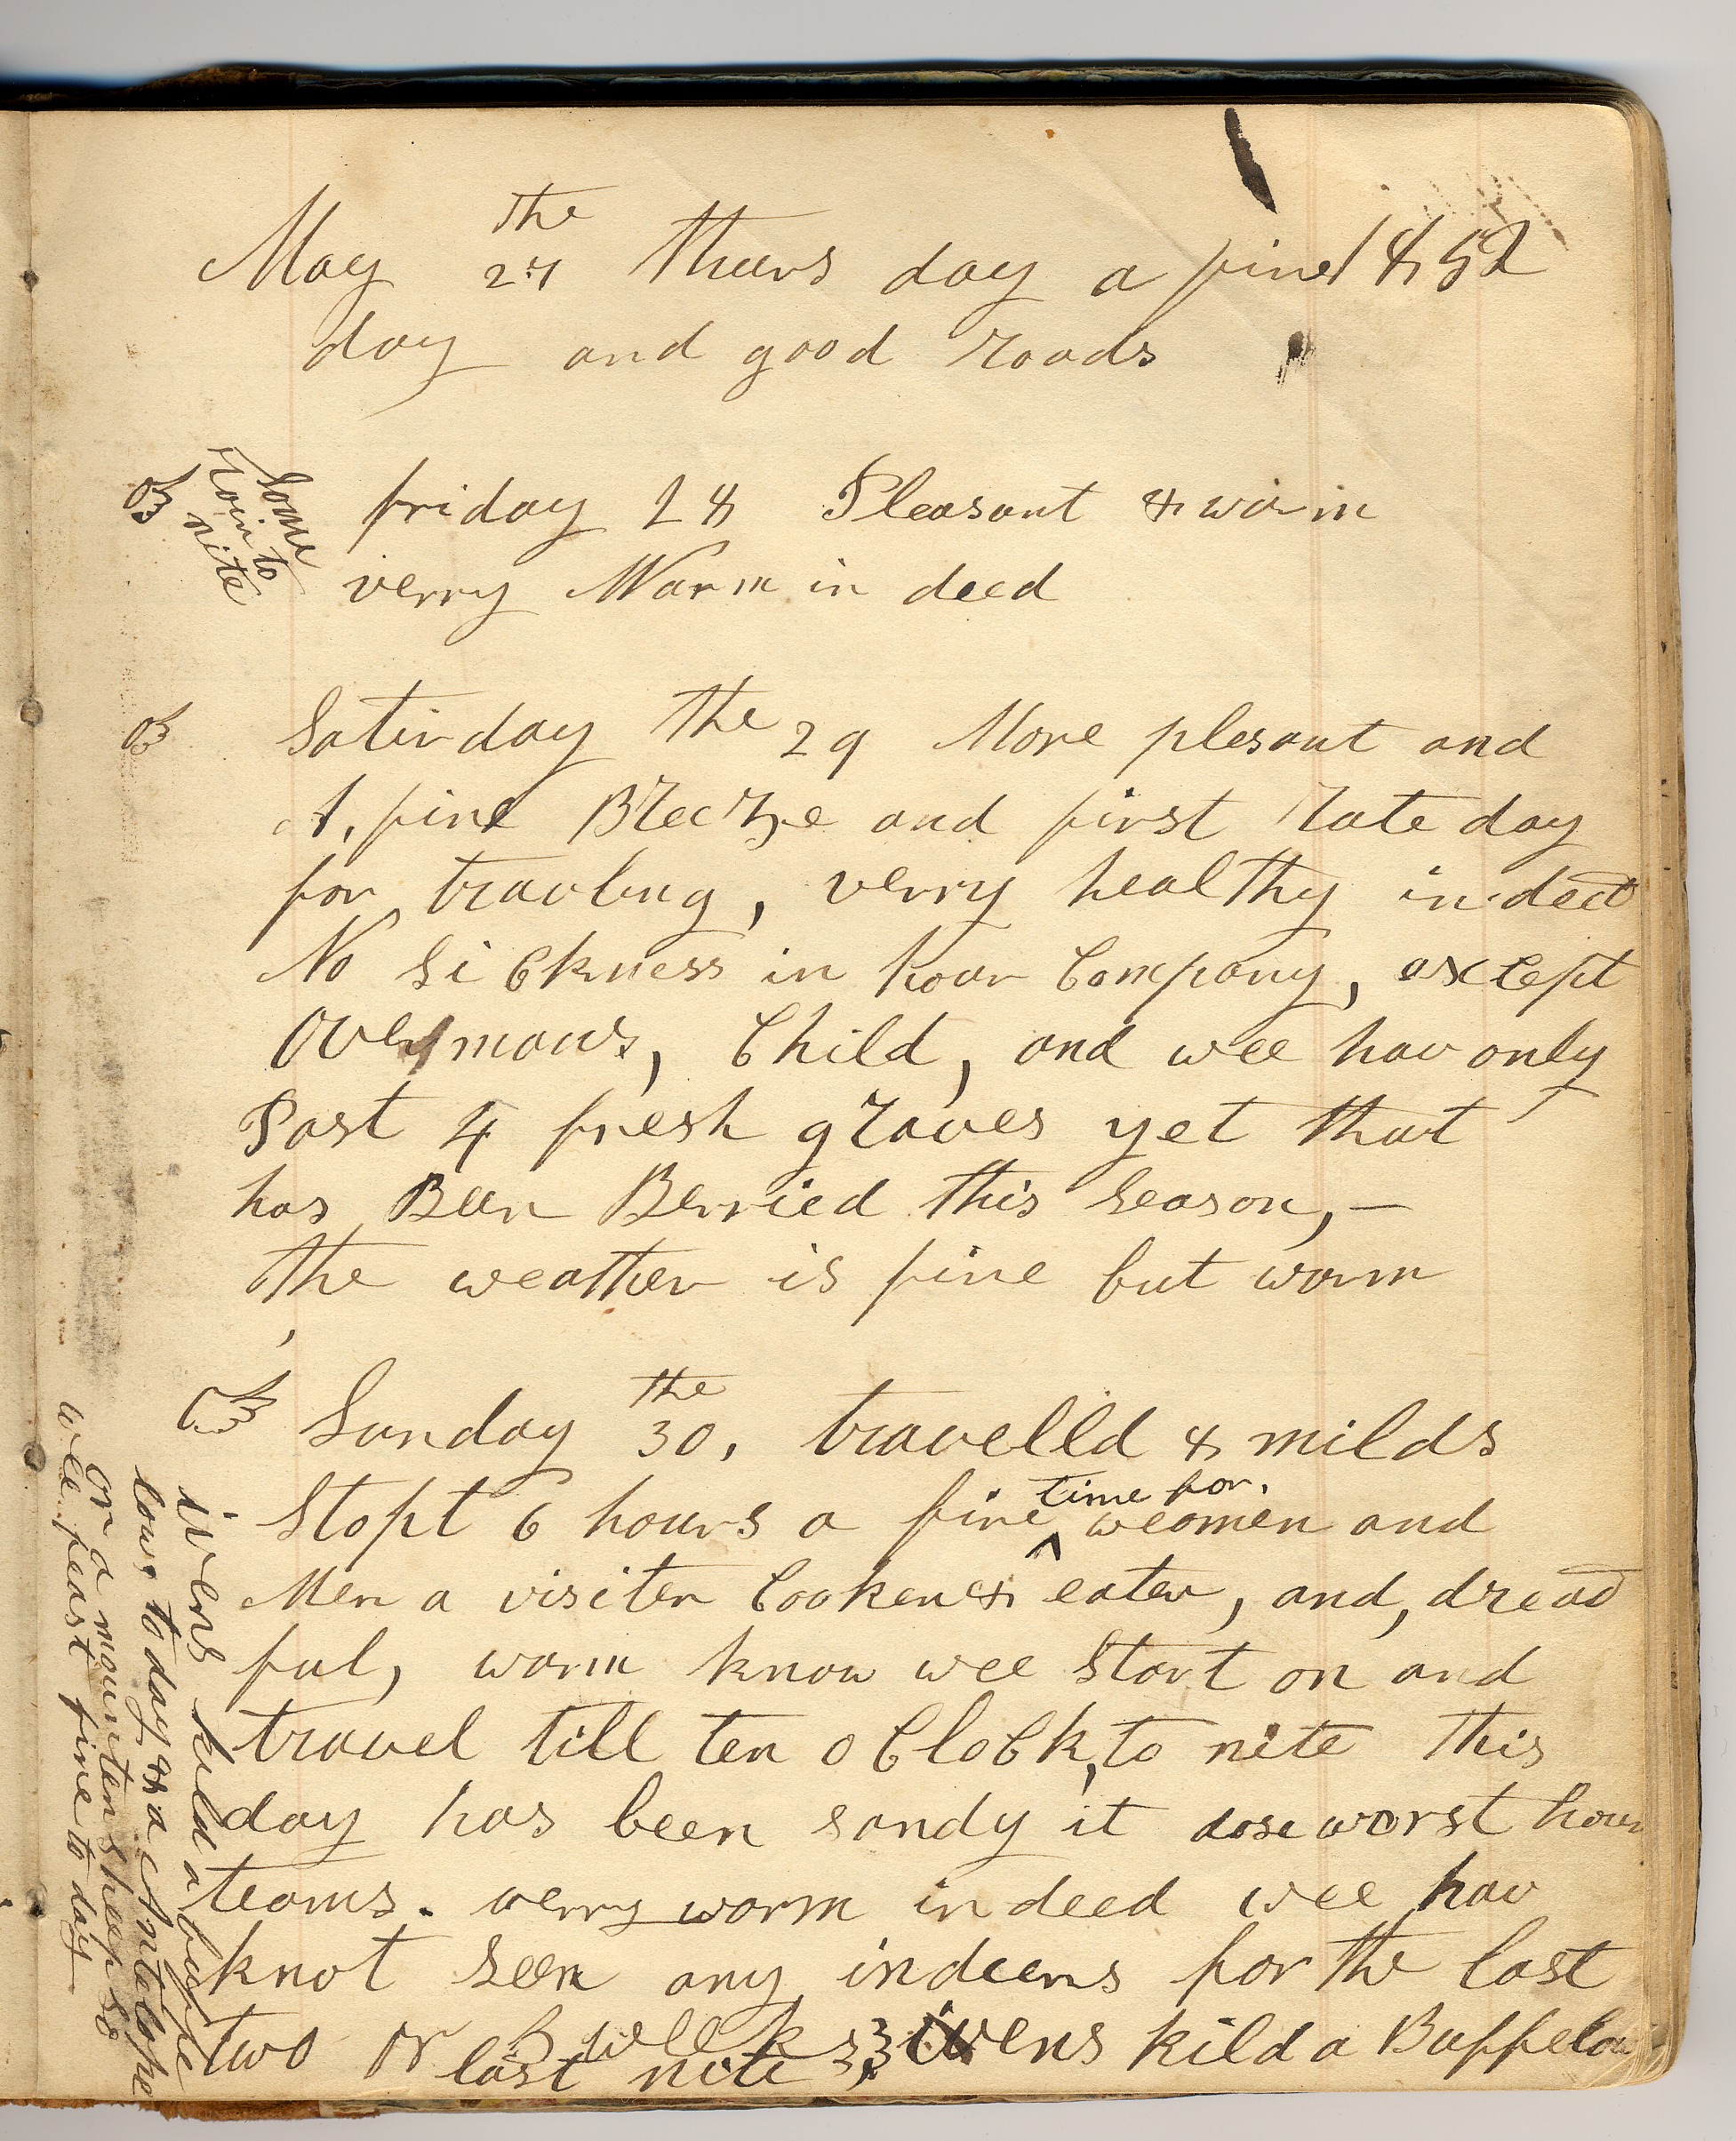 May the 27 thurs day a fine 1852
day and good roads
Some
rain to
nite
friday 28 Pleasant & warm
verry Warm in deed
Saturday the 29 More plesant and
A, fine Breeze and first rate day
for travling, verry healthy indeed
No Sickness in hour Company, except
child, and wee hav only
Past 4 fresh graves yet that
has Been Berried this Season, —
the weather is fine but warm
Sunday the 30, travelld 8 milds
Stopt 6 hours a fine time for. weomen and
Men a visiten Cooken & eaten, and, dread
ful, warm know wee Start on and
travel till ten o Clock, to nite this
day has been sandy it dose worst hour
teams. verry warm indeed wee hav
knot seen any indeens for the last
two or 3 weeks, ivens kild a Buffelow
last nite
ivens kild a buffe
low, to day, & a Antelope
or a mounten sheep so
wee feast fine to day